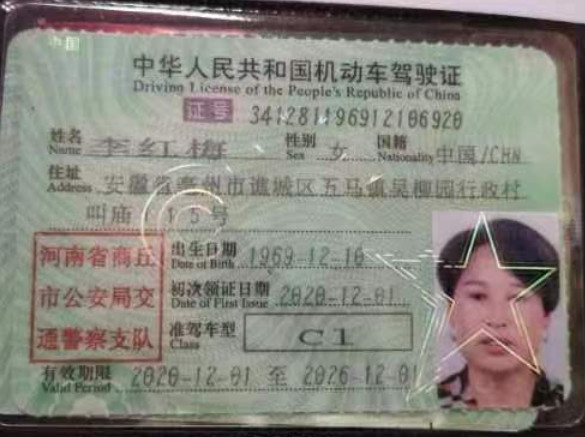 中国
中华人民共和国机动车驾驶证
Driving License of the People's Republic of China
证号 341281196912106920
姓名 李红梅 性别 女 国籍 中国/CHN
Name Sex Nationality
住址 安徽省亳州市谯城区五马镇吴柳园行政村
Address
叫庙 15号
河南省商丘
市公安局交
通警察支队
出生日期 1969-12-10
Date of Birth
初次领证日期 2020-12-01
Date of First Issue
准驾车型 C1
Class
有效期限 2020-12-01 至 2026-12-01
Valid Period